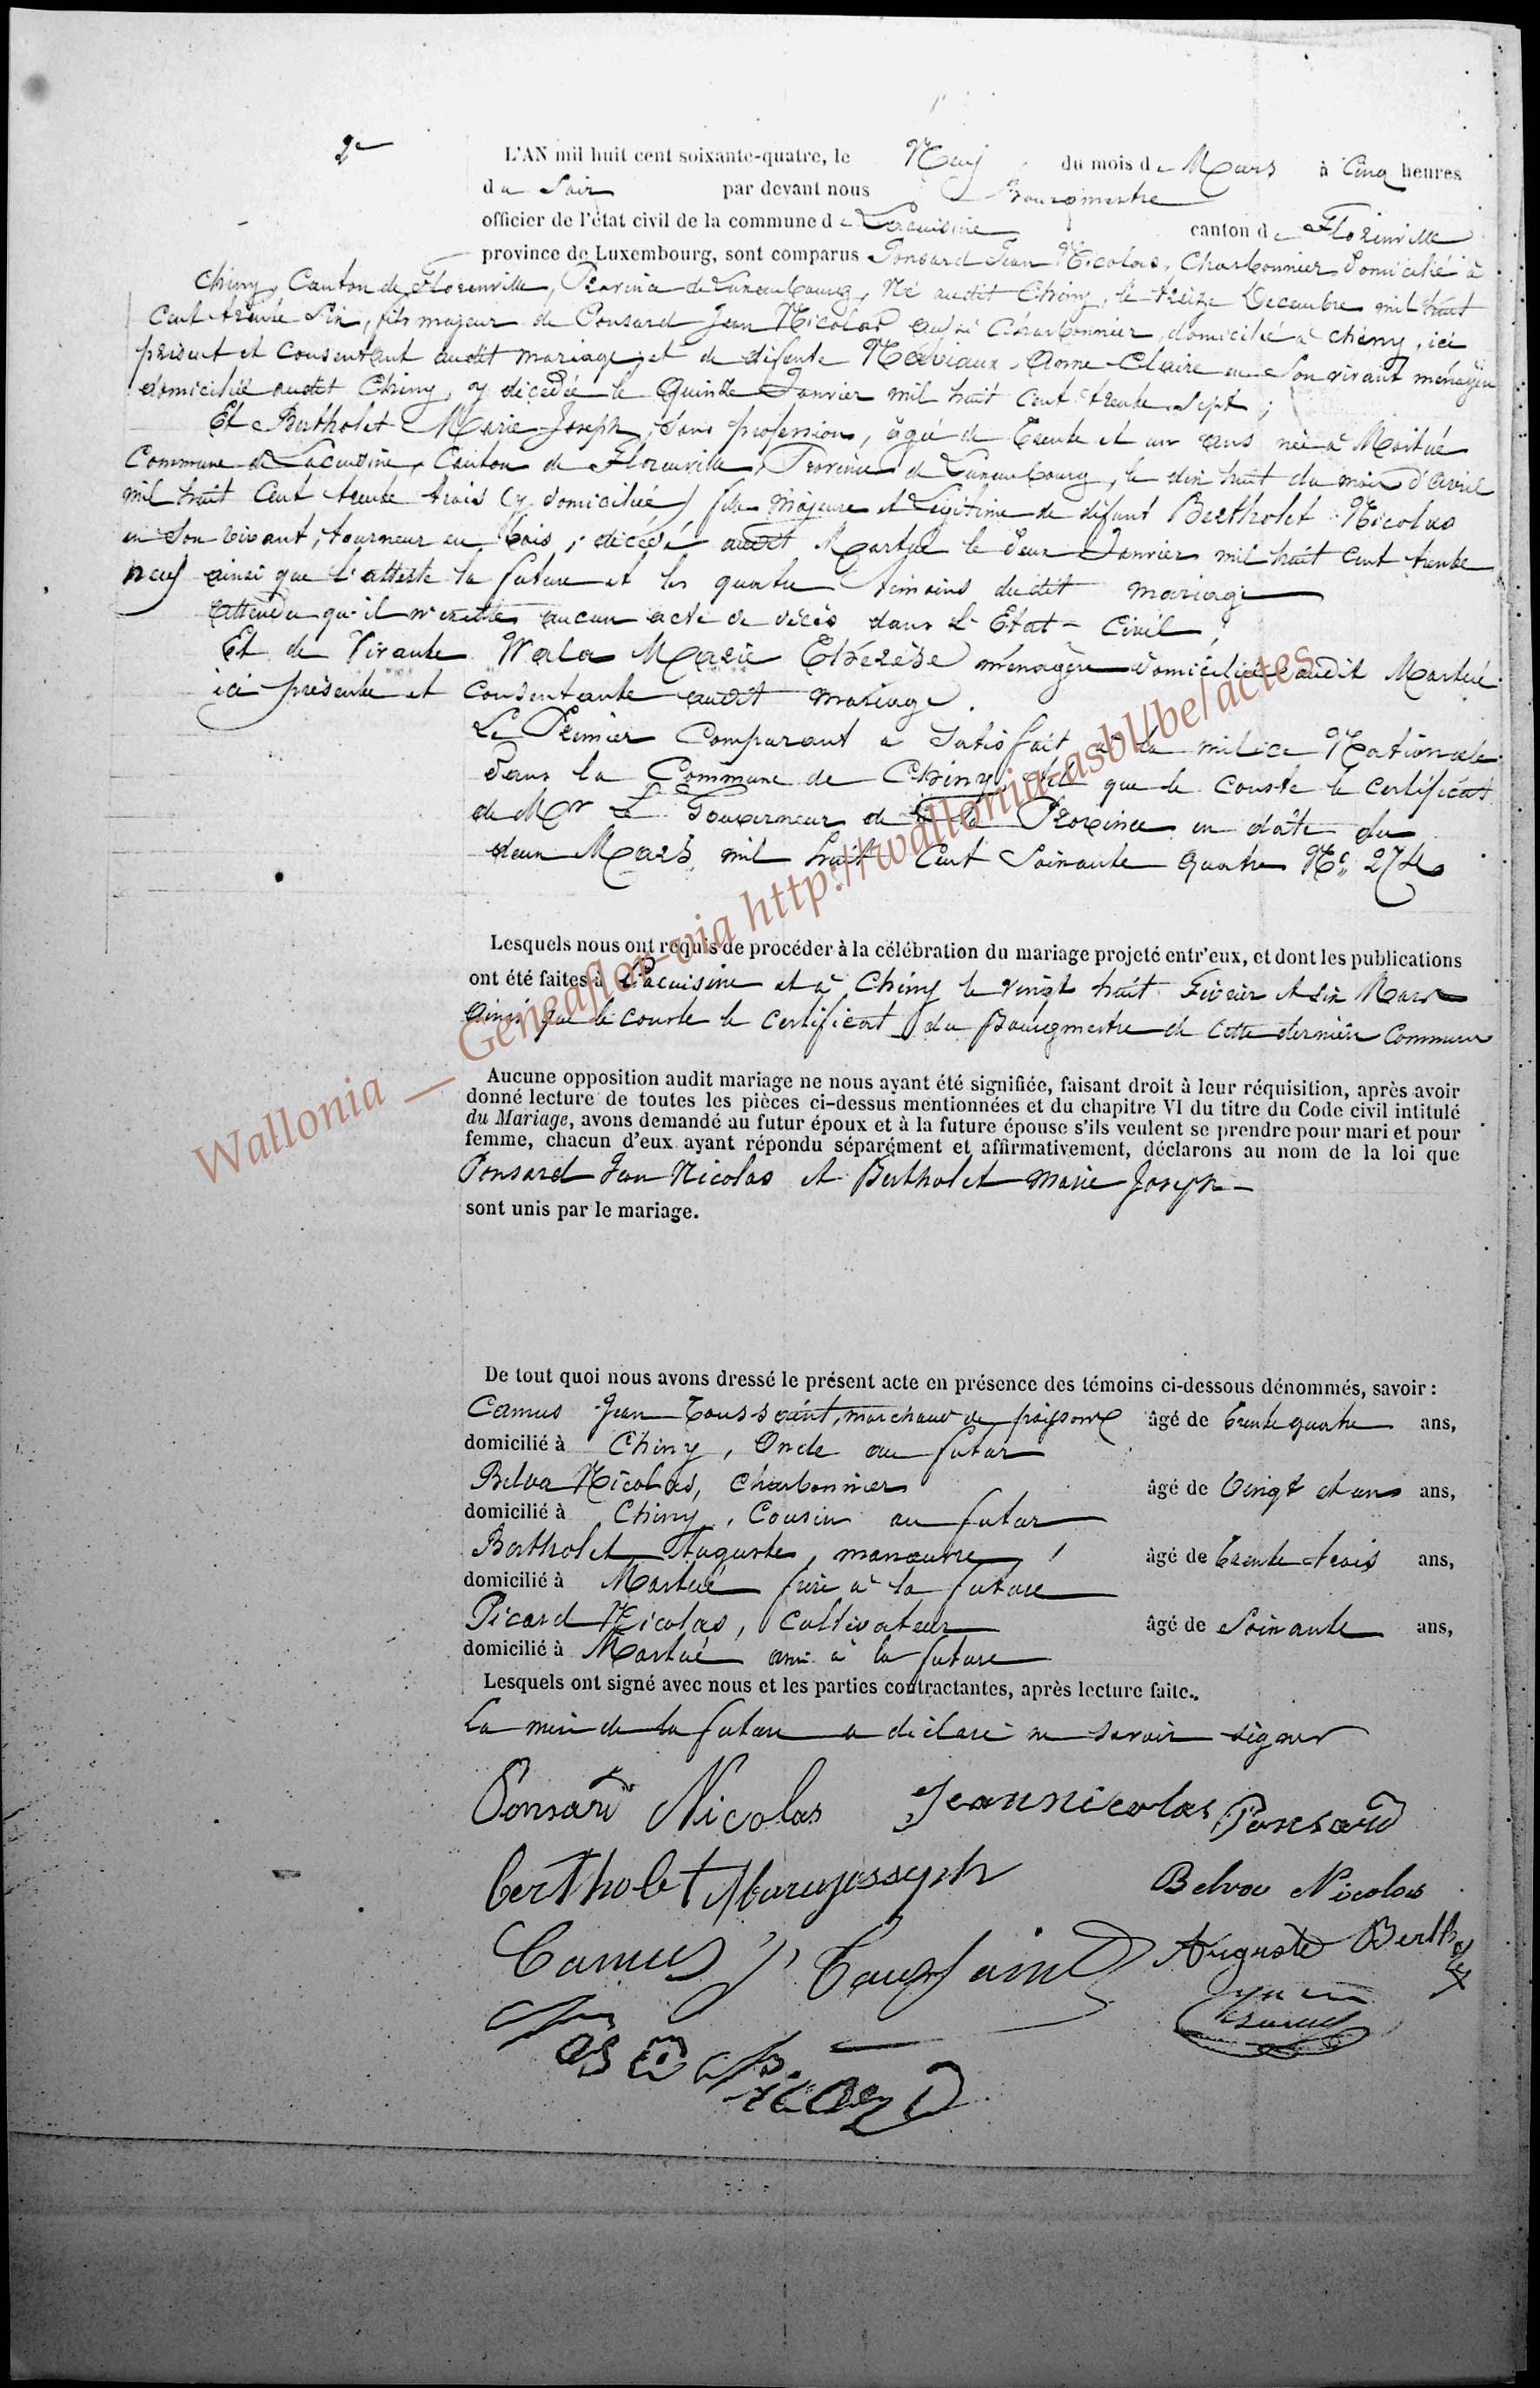 2e
L'AN mil huit cent soixante-quatre, le Neuf du mois de Mars à Cinq heures
du Soir par devant nous Bourgmestre
officier de l'état civil de la commune de Lacuisine canton de Florenville
province de Luxembourg, sont comparus Ponsard Jean Nicolas, Charbonnier domicilié à
Chiny, Canton de Florenville, Province de Luxembourg, Né audit Chiny, le treize Decembre mil huit
Cent trente Six, fils majeur de Ponsard Jean Nicolas aussi Charbonnier, domicilié à Chiny, ici
présent et Consentant audit mariage, et de défunte Naviaux Anne-Claire en Son vivant ménagère
domiciliée audit Chiny, y décédée le Quinze Janvier mil huit Cent trente Sept ;
Et Bertholet Marie Joseph, Sans profession, âgée de Trente et un ans née à Martué
Commune de Lacuisine, Canton de Florenville, Province de Luxembourg, le dix huit du mois d'Avril
mil huit Cent trente trois (y domiciliée) fille Majeure et Légitime de défunt Bertholet Nicolas
en Son vivant, tourneur en bois, décédé audit Martué le deux Janvier mil huit cent trente
neuf ainsi que l'atteste la future et les quatre témoins dudit mariage
attendu qu'il n'existe aucun acte de décès dans L'Etat-Civil,
Et de Vivante Wala Marie Thérèse ménagère domiciliée audit Martué
ici présente et Consentante audit mariage.
Le Premier Comparant a Satisfait à la milice Nationale
dans la Commune de Chiny, tel que le Conste le Certificat
de Mr Le Gouverneur de la Province en date du
deux Mars mil huit Cent Soixante Quatre No 274
Lesquels nous ont requis de procéder à la célébration du mariage projeté entr'eux, et dont les publications
ont été faites à Lacuisine et à Chiny le vingt huit Février et Six Mars
Ainsi que le Conste le Certificat du Bourgmestre de cette dernière Commune
Aucune opposition audit mariage ne nous ayant été signifiée, faisant droit à leur réquisition, après avoir
donné lecture de toutes les pièces ci-dessus mentionnées et du chapitre VI du titre du Code civil intitulé
du Mariage, avons demandé au futur époux et à la future épouse s'ils veulent se prendre pour mari et pour
femme, chacun d'eux ayant répondu séparément et affirmativement, déclarons au nom de la loi que
Ponsard Jean Nicolas et Bertholet Marie Joseph
sont unis par le mariage.
De tout quoi nous avons dressé le présent acte en présence des témoins ci-dessous dénommés, savoir :
Camus Jean Toussaint, marchand de poissons âgé de trente quatre ans,
domicilié à Chiny, Oncle au futur
Belva Nicolas, Charbonnier âgé de Vingt et un ans,
domicilié à Chiny, Cousin au futur
Bertholet Auguste, manoeuvre, âgé de trente trois ans,
domicilié à Martué frère à la future
Picard Nicolas, Cultivateur âgé de Soixante ans,
domicilié à Martué ami à la future
Lesquels ont signé avec nous et les parties contractantes, après lecture faite.
La mère de la future a déclaré ne savoir signer
Ponsard Nicolas Jeannicolas Ponsard
bertholet Mariejosseph Belva Nicolas
Camus J Toussaint Auguste Bertholet
Picard
Wallonia _ Geneaflor-via http://wallonia-asbl/be/actes